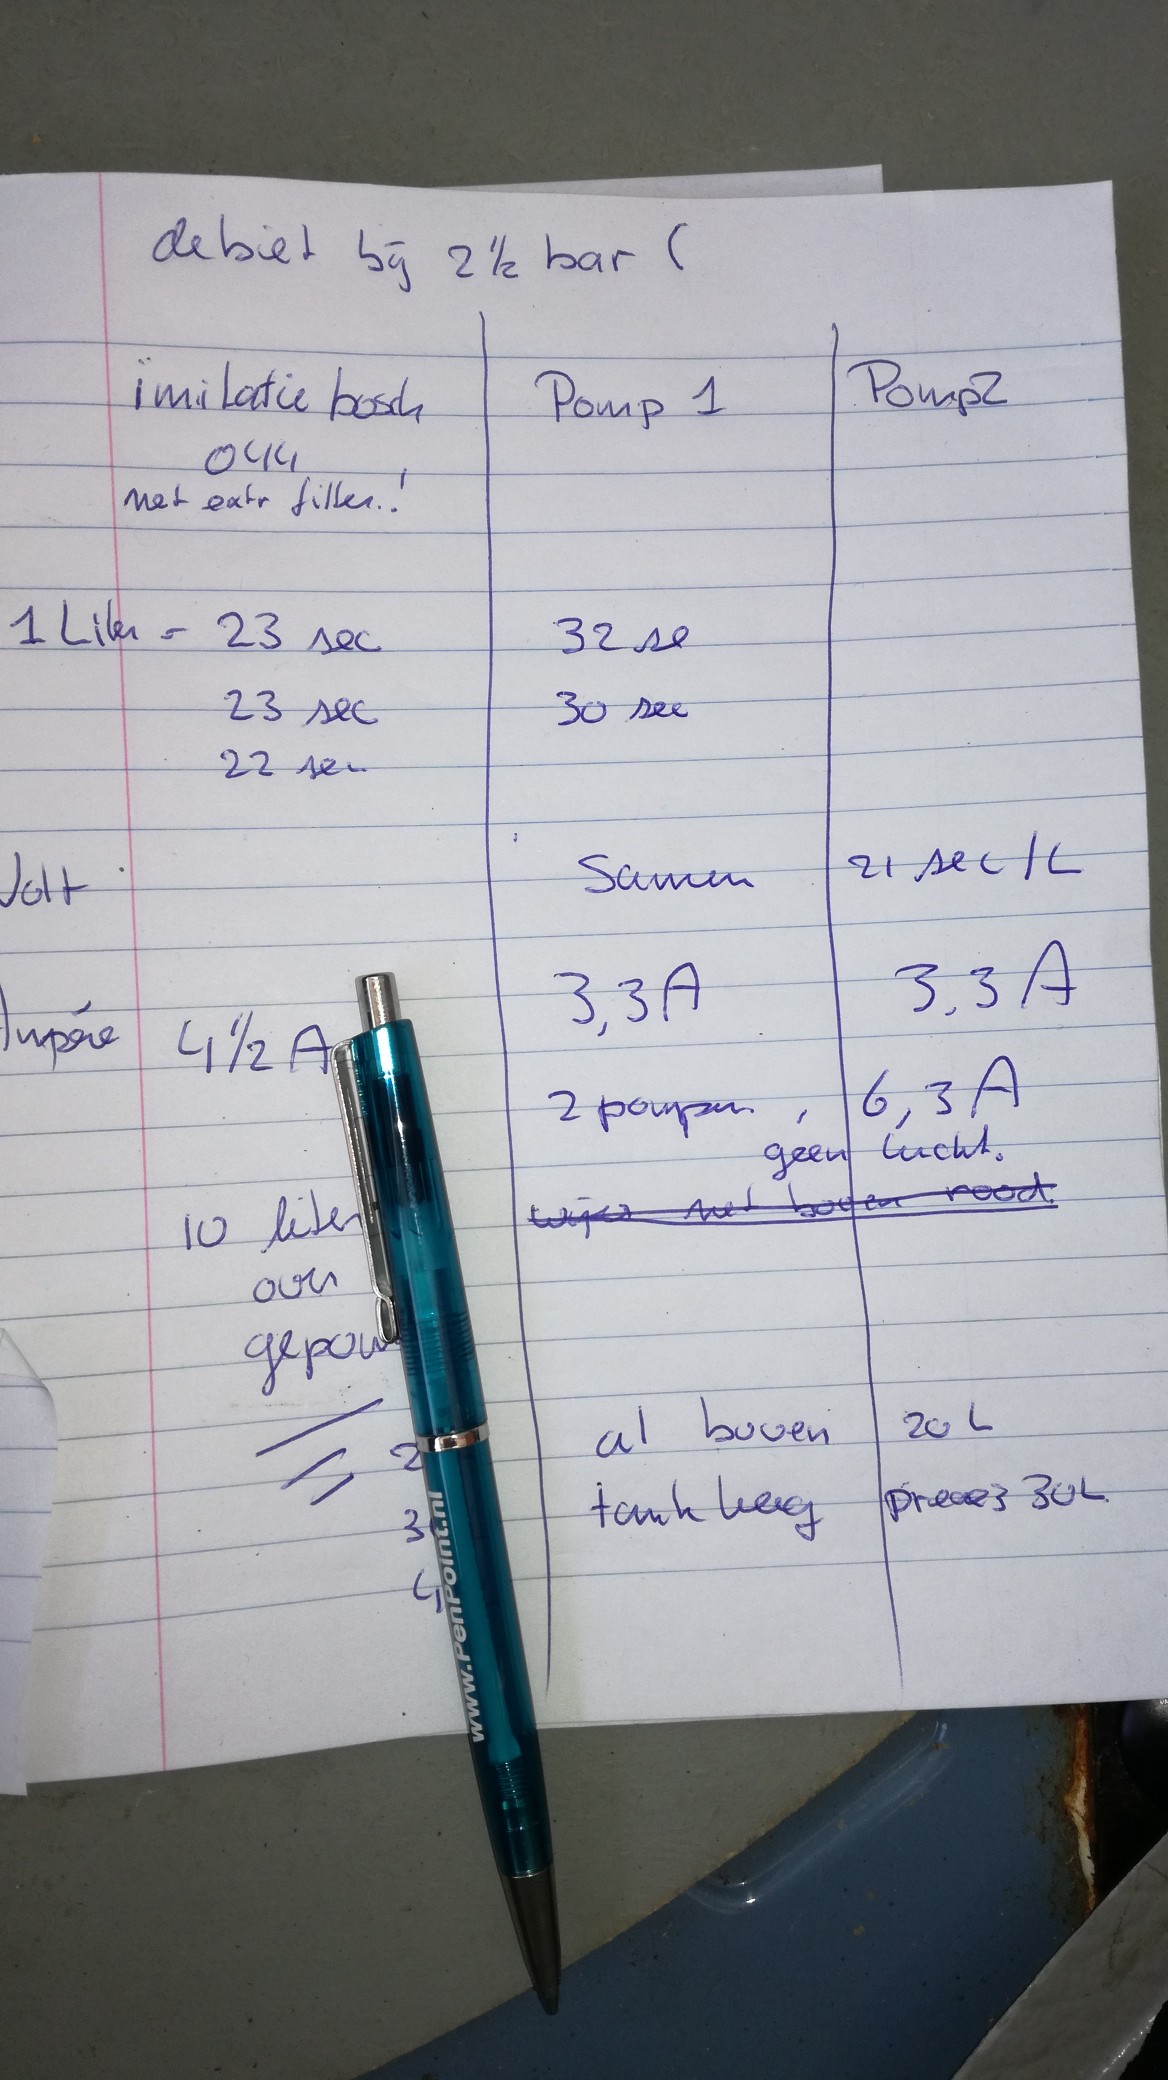 debiet bij 2½ bar (
imitatie bosch Pomp 1 Pomp2
044
met extr filter.!
1 Liter = 23 sec 32 se
23 sec 30 sec
22 sec
Volt Samen 21 sec/L
Ampére 4½ A 3,3A 3,3A
2 pompen, 6,3A
geen lucht.
wijzer net boven rood.
10 liter
over
gepom
2 al boven 20 L
3 tank leeg precies 30L
4
www.PenPoint.nl